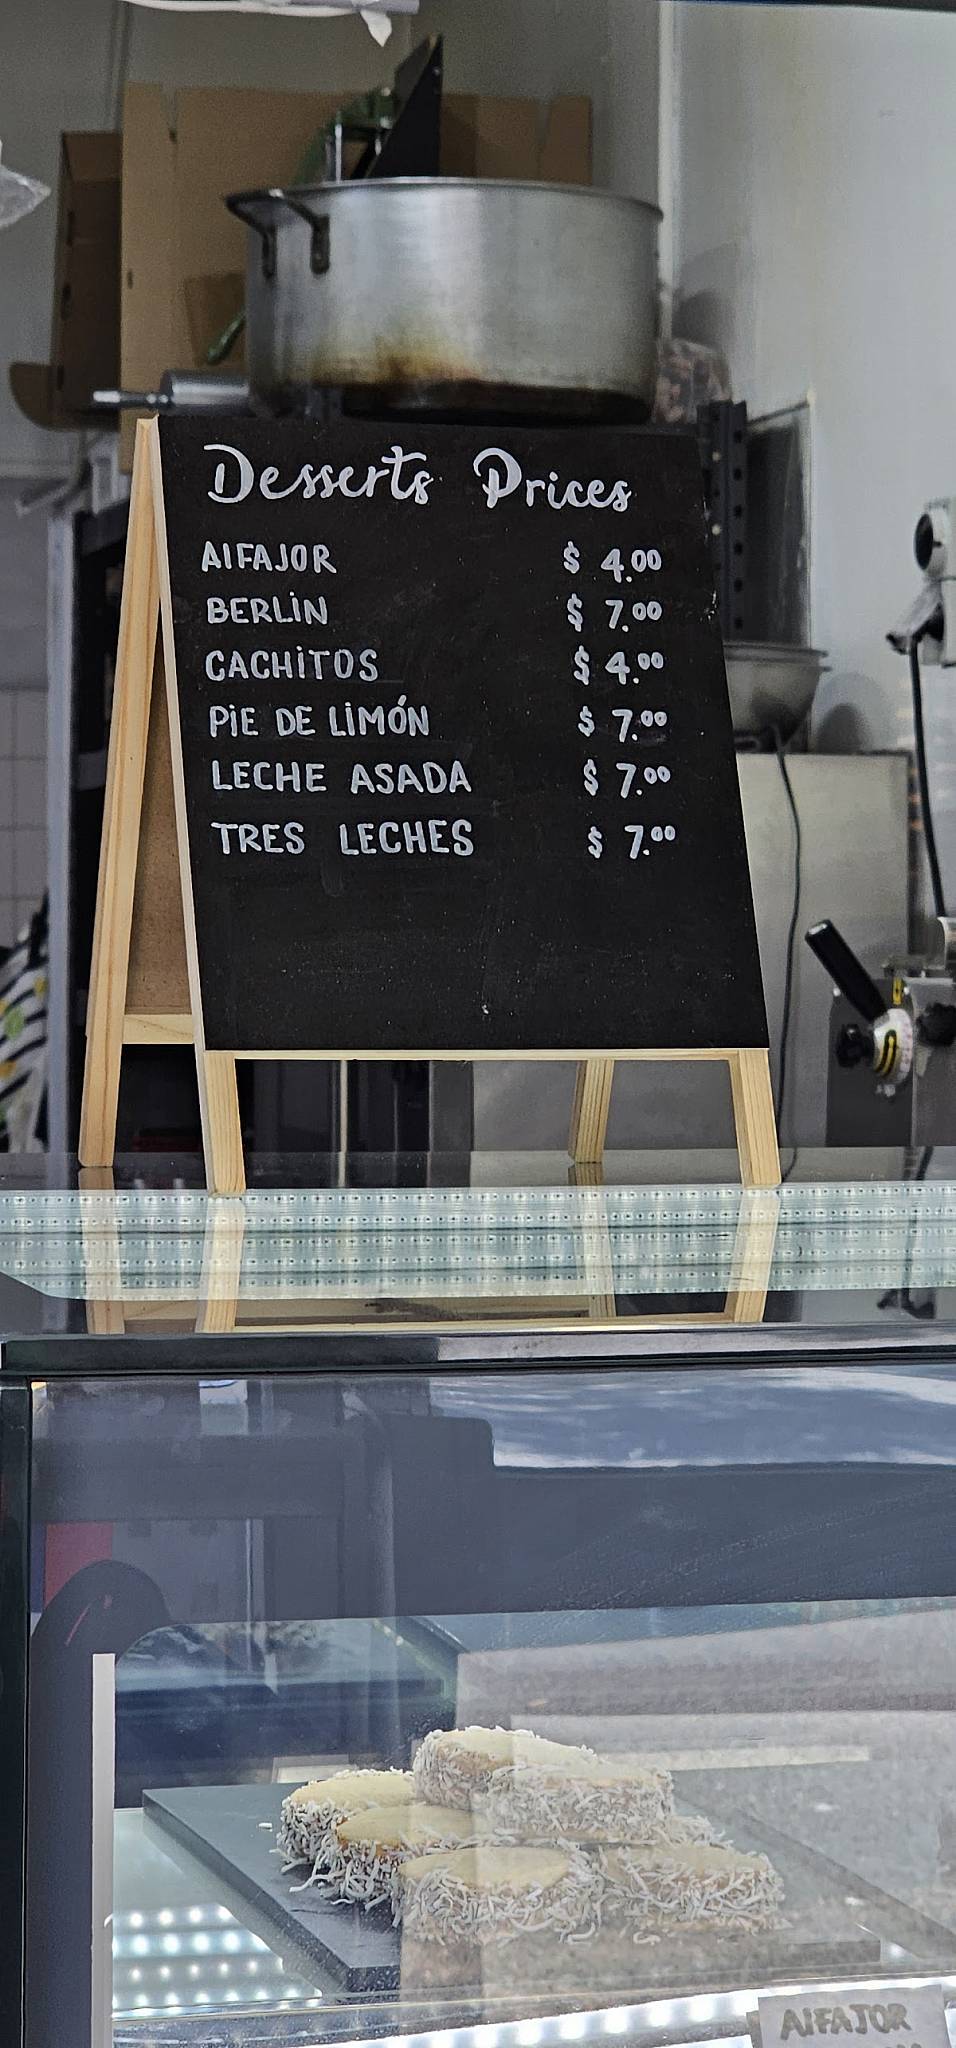 Desserts Prices
AlFAJOR $ 4.00
BERLiN $ 7.00
CACHiTOS $ 4.00
PiE DE LiMÓN $ 7.00
LECHE ASADA $ 7.00
TRES LECHES $ 7.00
AlFAJOR